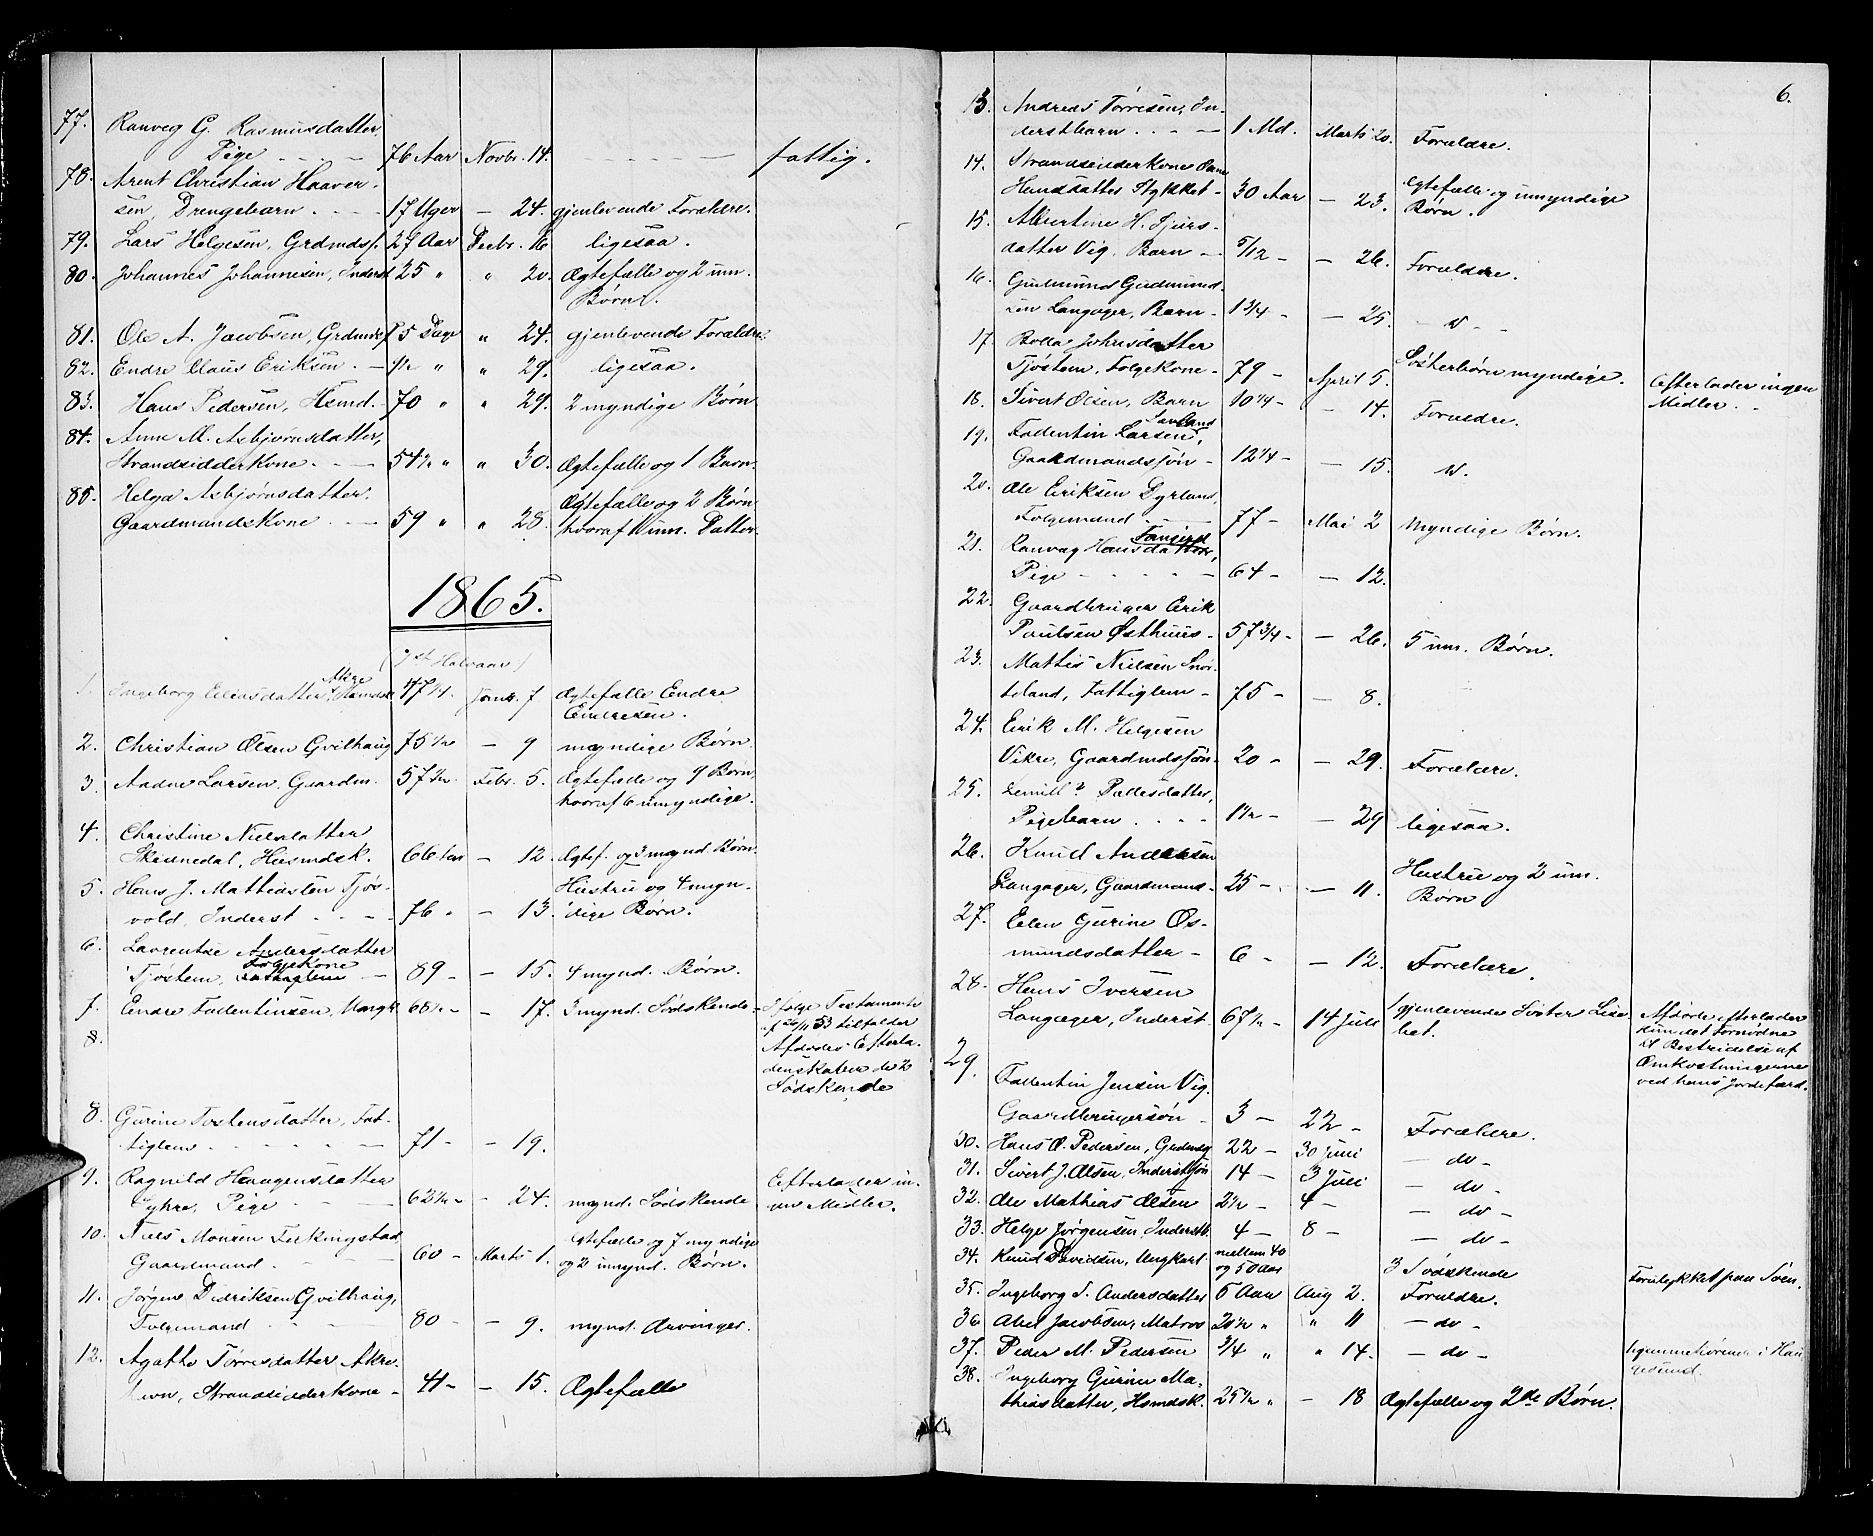 77. Ranveg G. Rasmusdatter,
Pige - - - 76 Aar Novbr. 14. - - - fattig.
78. Arent Christian Haaver-
sen, Drengebarn. - - 17 Uger - 24. gjenlevende Forældre.
79. Lars Helgesen, Grdmdss. 27 Aar Decbr. 16 ligesaa.
80. Johannes Johannesen, Inderst 25 " " 20. Ægtefælle og 2 um.
Børn.
81. Ole A. Jacobsen, Grdmds 5 Dage " 24. gjenlevende Forældre.
82. Endre Claus Eriksen. - 1/2 " " 29. ligesaa.
83. Hans Pedersen, Hsmd. - 70 " " 29. 2 myndige Børn
84. Anne M. Asbjørnsdatter,
Strandsidderkone. - - 54 1/2 " " 30. Ægtefælle og 1 Barn.
85. Helga Asbjørnsdatter.
Gaardmandskone. - - 59 " " 28. Ægtefælle og 2 Børn
hvoraf 1 um. Datter.
1865.
(1st Halvaar)
1. Ingeborg Eliasdatter Akre, Hsmdsk. 47 1/4. Janr. 7 Ægtefælle Endre
Endresen.
2. Christian Olsen Gvilhaug 75 1/2 - 9 myndige Børn
3. Aadne Larsen, Gaardm. 57 1/2. Febr. 5. Ægtefælle og 9 Børn,
hvoraf 6 umyndige.
4. Christine Nielsdatter
Skeisnedal, Husmdsk. 66 - 12. Ægtef. og 3 mynd. Børn.
5. Hans J. Mathiassen Tjøs-
vold, Inderst - - - 76 " - 13. Hustru og 4 myn-
dige Børn.
6. Laurentse Andersdatter
Tjøstem, Folgekone - 89 - - 15. 4 mynd. Børn.
7. Endre Fallentinsen, Ungk. 68 1/2 - - 17. 3 mynd. Sødskende - Ifølge Testamente
8. af 20/11 53 tilfalder
Afdødes Efterla-
denskaber de 2
Sødskende
8. Gurine Torstensdatter, Fat-
tiglem - - - - 71 - - 19.
9. Ragnild Haagensdatter
Sykre, Pige - - 62 1/2 - - 24. mynd. Sødskende Efterlader in-
gen Midler.
10. Niels Monsen Ferkingstad
Gaardmand. - - 60 - Marts 1. Ægtefælle og 7 myndige
og 2 umynd. Børn.
11. Jørgen Didriksen Gvilhaug,
Folgemand - - 80 - - 9. mynd. Arvinger.
12. Agathe Tørresdatter Akre-
havn, Strandsidderkone - 41 - - 15. Ægtefælle
6.
13. Andreas Tørresen, In-
derstbarn. - - - 1 Md. Marts 20. Forældre.
14. Strandsidderkone Ane
Hansdatter Stykket - 30 Aar - 23. Ægtefælle og umyndige
Børn.
15. Albertine H. Sjurs-
datter Vig, Barn - 5/12 - - 26. Forældre.
16. Gudmund Gudmund-
sen Langager, Barn - 1 3/4 - - 25. - do -
17. Bolla Johnsdatter
Tjøstem, Folgekone - 79 - April 5. Søsterbørn myndige. Efterlader ingen
Midler.
18. Sivert Olsen, Barn 10 1/4 - - 14. Forældre.
19. Fallentin Larsen Sanland,
Gaardmandssøn - 12 1/4 - - 15. do.
20. Ole Eriksen Dyrland,
Folgemand - - 77 - Mai 2 Myndige Børn.
21. Ranvag Hansdatter,
Pige - - - - 64 - - 12.
22. Gaardbruger Erik
Paulsen Østhuus - 57 3/4 - - 26. 5 um. Børn.
23. Mathis Nielsen Snør-
teland, Fattiglem - 75 - - 8.
24. Erik M. Helgesen
Vikre, Gaardmdssøn - 20 - - 29. Forældre.
25. Pallesdatter,
Pigebarn. - - - 1 1/2 - - 29 ligesaa.
26. Knud Andersen
Langager, Gaardmand - 25 - - 11. Hustru og 2 um.
Børn
27. Elen Gurine Os-
mundsdatter - 6 - - 12. Forældre.
28. Hans Iversen
Langager, Inderst. 67 1/2 - 14 Juli 1 gjenlevende Søster Lisa-
bet. Afdøde efterlader
kun det Fornødne
til Bestridelse af
Omkostningerne
ved hans Jordefærd.
29. Fallentin Jensen Vig.
Gaardbrugersøn - 3 - 22 - Forældre.
30. Hans O. Pedersen, 22 - 30 Juni - do -
31. Sivert J. Olsen, Inderstsøn 14 - 3 Juli - do -
32. Ole Mathias Olsen 2 1/2 - 4 - - do -
33. Helge Jørgensen, Inderstb. 4 - 8 - - do -
34. Knud Davidsen, Ungkarl. mellem 40
og 50 Aar 3 Sødskende Forulykket paa Søen.
35. Ingeborg S. Andersdatter 5 Aar Aug 2. Forældre.
36 Abel Jacobsen, Matros 20 1/2 " " 11 - do -
37. Peder M. Pedersen 3/4 " " 14. - do - hjemmehørende i Hau-
gesund.
38. Ingeborg Gurine Ma-
thiasdatter, Hsmdsk. 25 1/2 " - 18 Ægtefælle og 2de Børn.